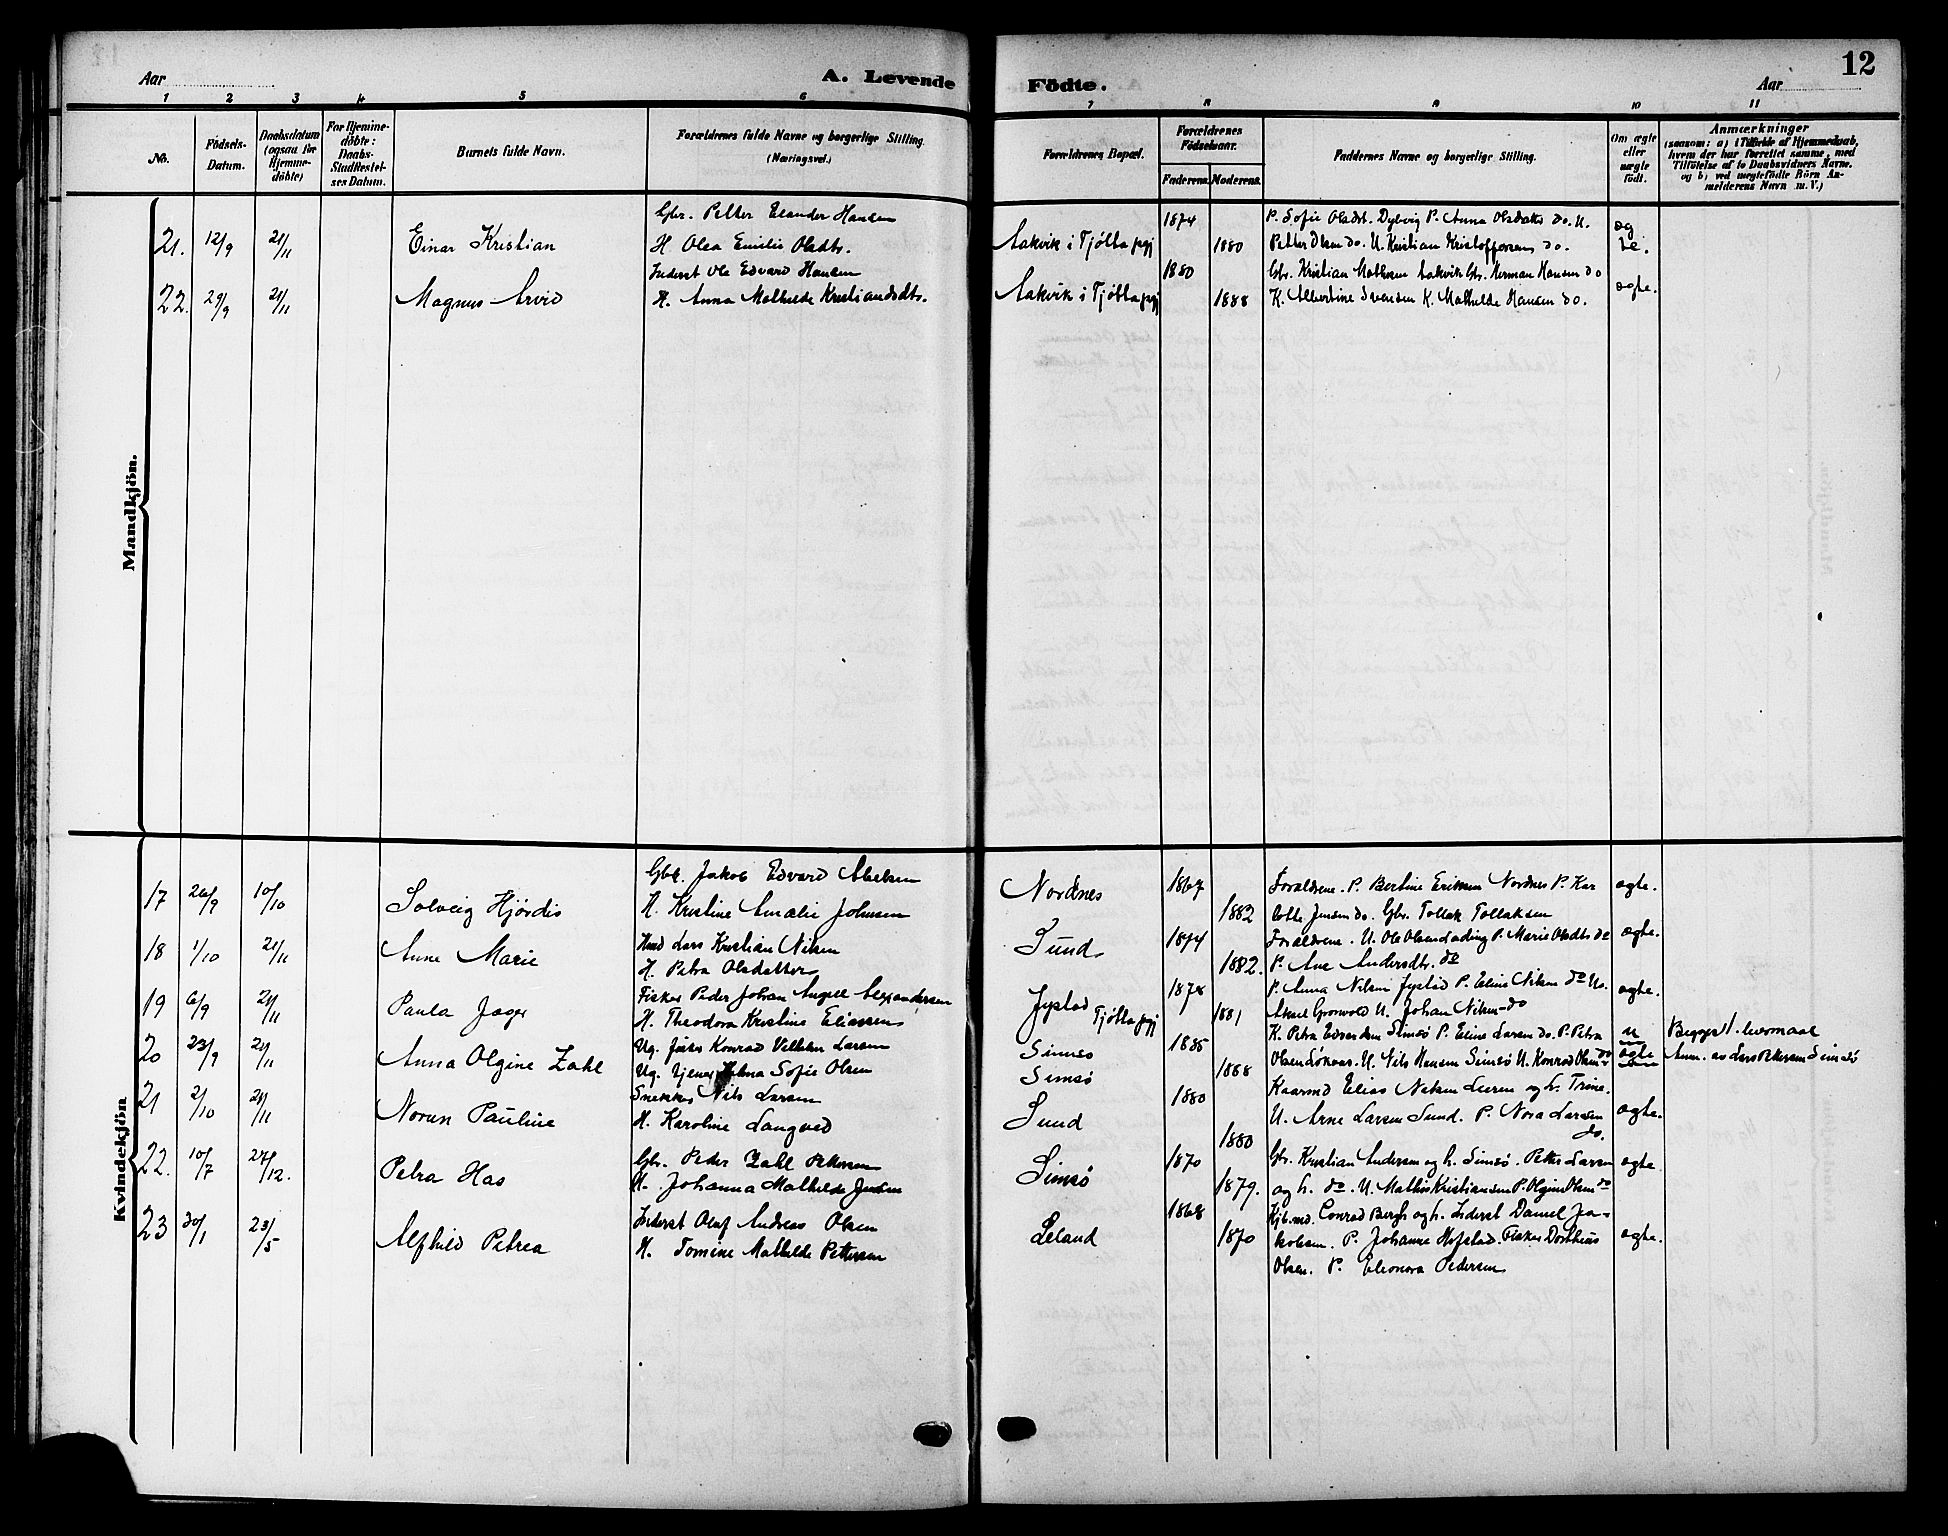 Aar
A. Levende
Födte.
Aar
12
1 2 3 4 5 6 7 8 9 10 11
No.
Födsels-
Datum.
Daabsdatum
(ogsaa for
Hjemme-
döbte)
For Hjemme-
döbte:
Daabs-
Stadfæstel-
ses Datum.
Barnets fulde Navn.
Forældrenes fulde Navne og borgerlige Stilling.
(Næringsvei.)
Forældrenes Bopæl.
Forældrenes
Födselsaar.
Faderens. Moderens.
Faddernes Navne og borgerlige Stilling.
Om ægte
eller
uægte
födt.
Anmærkninger
(saasom: a) i Tilfælde af Hjemmedaab,
hvem der har forrettet samme, med
Tilföielse af to Daabsvidners Navne.
og b) ved uægtefödte Börn An-
melderens Navn m. V.)
Mandkjön.
Gbr. Petter Elander Hansen 1874 P. Sofie Olsdt. Dybvig P. Anna Olsdatter do. U. æg
21. 12/9 21/11 Einar Kristian H Olea Emilie Olsdtr. Aakvik i Tjøtta pgj 1880 Petter Olsen do. U. Kristian Kristoffersen do. te.
Inderst Ole Edvard Hansen 1880 Gbr. Kristian Mathisen Aakvik Gbr. Herman Hansen do
22. 29/9 21/11 Magnus Arvid H. Anna Mathilde Kristiansdtr. Aakvik i Tjøtta pgj 1888 K. Albertine Svendsen K. Mathilde Hansen do. ægte.
Kvindekjön
Gbr. Jakob Edvard Abelsen 1867 Forældrene. P. Bertine Eriksen Nordnes P. Kar ægte.
17 26/9 10/10 Solveig Hjördis H. Kristine Amalie Johnsen Nordnes 1882 Jensen do. Gbr. Tollak Tollaksen
18 1/10 21/11 Anne Marie Lars Kristian Nilsen Sund 1874 Forældrene. U. Ole Olsen P. Marie Olsdtr do ægte.
H. Petra Olsdatter 1882. P. Ane Andersdtr. do
19 6/9 21/11 Paula Jager Fisker Peder Johan Angell Alexandersen Jystad 1878 P. Anna Nilsen Jystad P. Eline Nilsen do ægte.
H. Theodora Kristine Eliassen Tjøtta pgj 1881 U. Johan Nilsen do
20 23/9 21/11 Anna Olgine Zahl Ug. Konrad Larsen Simsö 1885 K. Petra Edvardsen Simsö P. Eline Larsen do. P. Petra u Begges 1. leiermaal
Ug. Sofie Olsen Simsö 1888 Olsen U. Nils Hansen Simsö U. Konrad Olsen do ægte Anm. av Lars Pettersen Simsö
21 2/10 21/11 Norun Pauline Snekker Nils Larsen Sund 1880 Kaarmd Elias Nilsen og h. Trine.
H. Karoline Langved 1880 U. Arne Larsen Sund. P. Nora Larsen do. ægte.
22. 10/7 27/12. Petra Has Gbr. Peder Zahl Pettersen Simsö 1870 Gbr. Kristian Andersen og h. Simsö. Petter Larsen ægte
H. Johanna Mathilde Jensen 1879. og h. do. U. Mathis Kristiansen P. Olgine Olsen do
23 30/1 23/5 Alfhild Petrea Inderst Olaf Andreas Olsen Leland 1868 Conrad Bergh og h. Inderst Daniel Ja-
H. Tomine Mathilde Pettersen 1870 kobsen. P. Johanne Hofstad. Fisker Dortheus ægte.
Olsen. P. Eleonora Pedersen